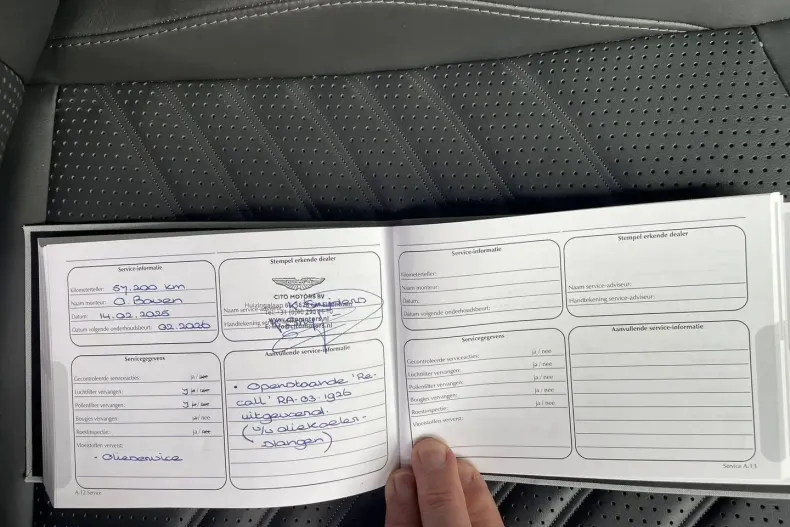 Service-informatie
Kilometerteller: 57.200 km
Naam monteur: O. Bouwen
Datum: 14.02.2025
Datum volgende onderhoudsbeurt: 02.2026
Stempel erkende dealer
CITO MOTORS BV
Naam service
Handtekening
Servicegegevens
Gecontroleerde serviceacties: ja / nee
Luchtfilter vervangen: ja / nee
Pollenfilter vervangen: ja / nee
Bougies vervangen ja / nee
Roestinspectie: ja / nee
Vloeistoffen ververst:
• Olieservice
Aanvullende service-informatie
• Openstaande 'Re-
call' RA.03.1926
uitgevoerd.
(v/v oliekoeler-
slangen)
A.12 Service
Service-informatie
Kilometerteller:
Naam monteur:
Datum:
Datum volgende onderhoudsbeurt:
Stempel erkende dealer
Naam service-adviseur:
Handtekening service-adviseur:
Servicegegevens
Gecontroleerde serviceacties: ja / nee
Luchtfilter vervangen: ja / nee
Pollenfilter vervangen: ja / nee
Bougies vervangen: ja / nee
Roestinspectie: ja / nee
Vloeistoffen ververst:
Aanvullende service-informatie
Service A.13